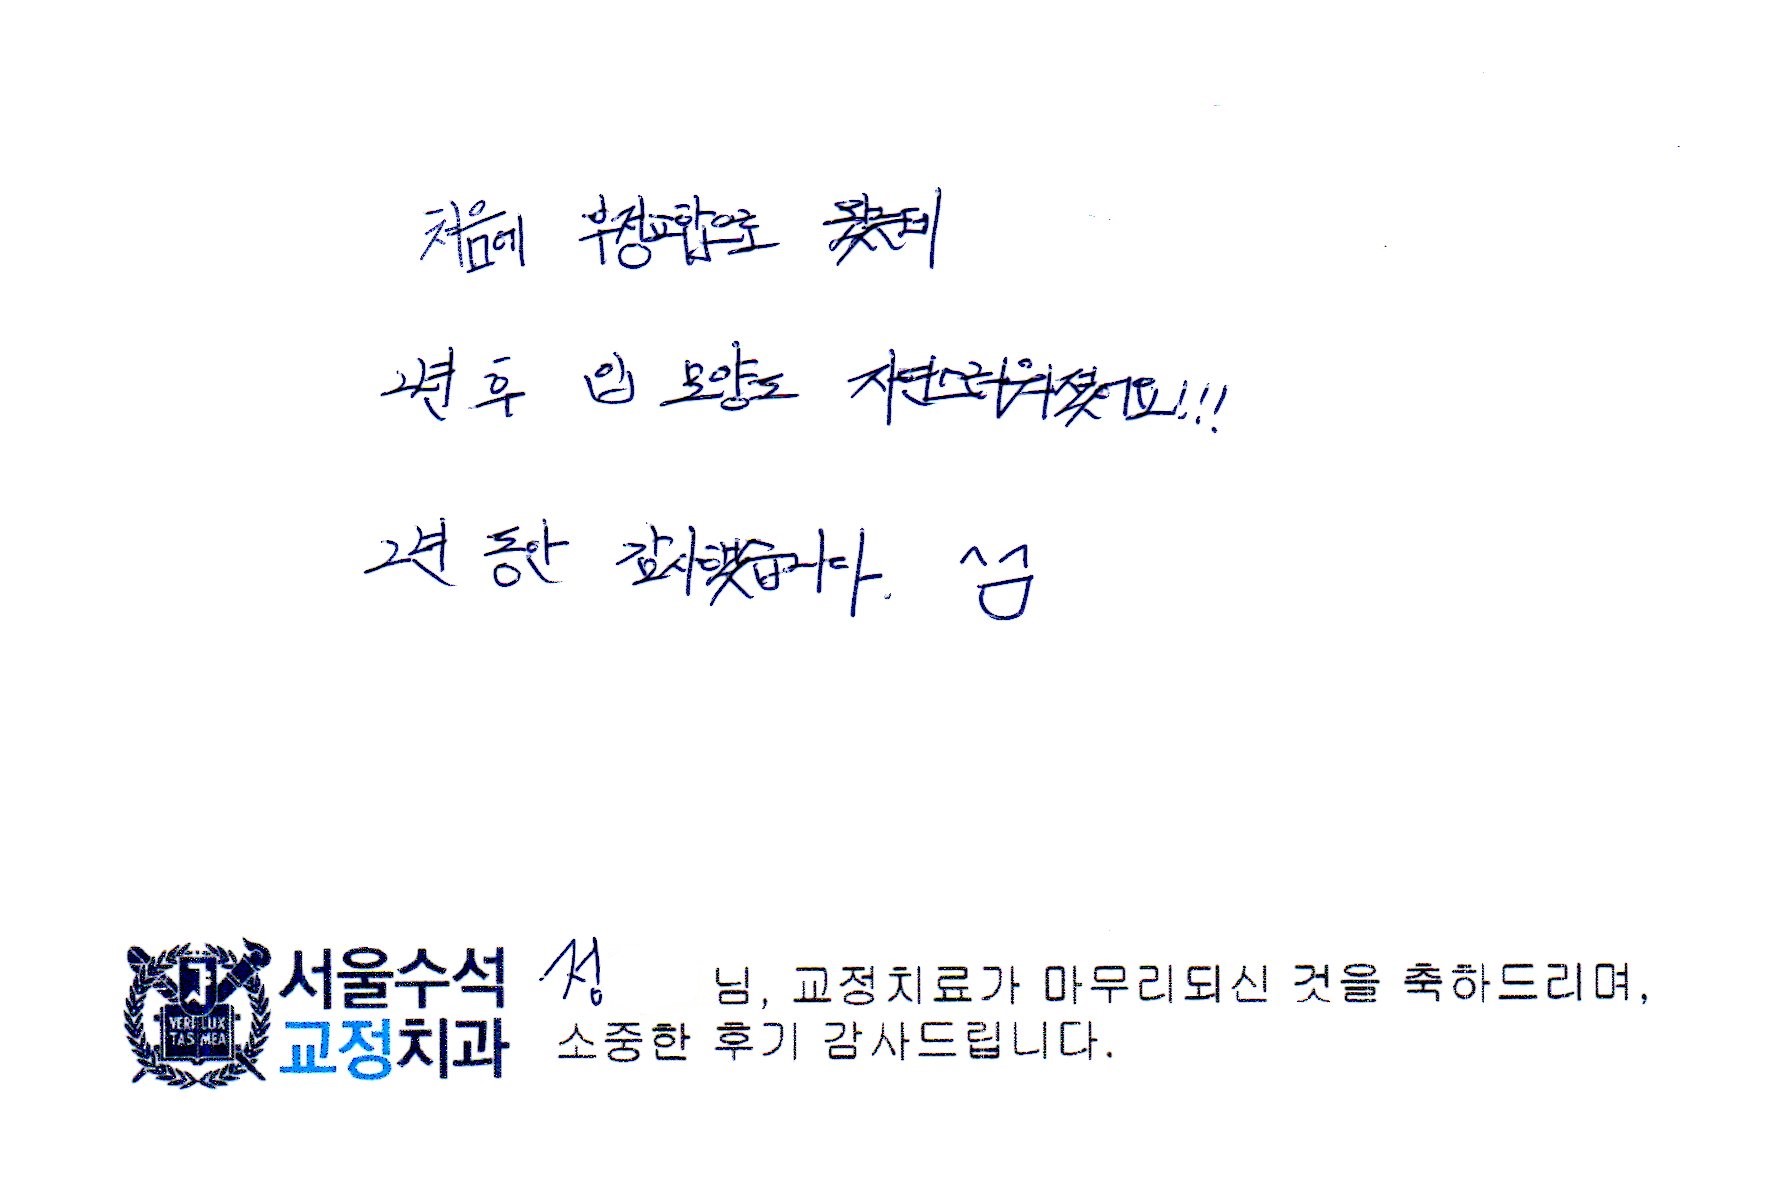 처음에 부정교합으로 왔는데
2년 후 입 모양도 자연스러워졌어요!!!
2년 동안 감사했습니다. ^^
서울수석
교정치과
VERI LUX
TAS MEA
정 님, 교정치료가 마무리되신 것을 축하드리며,
소중한 후기 감사드립니다.